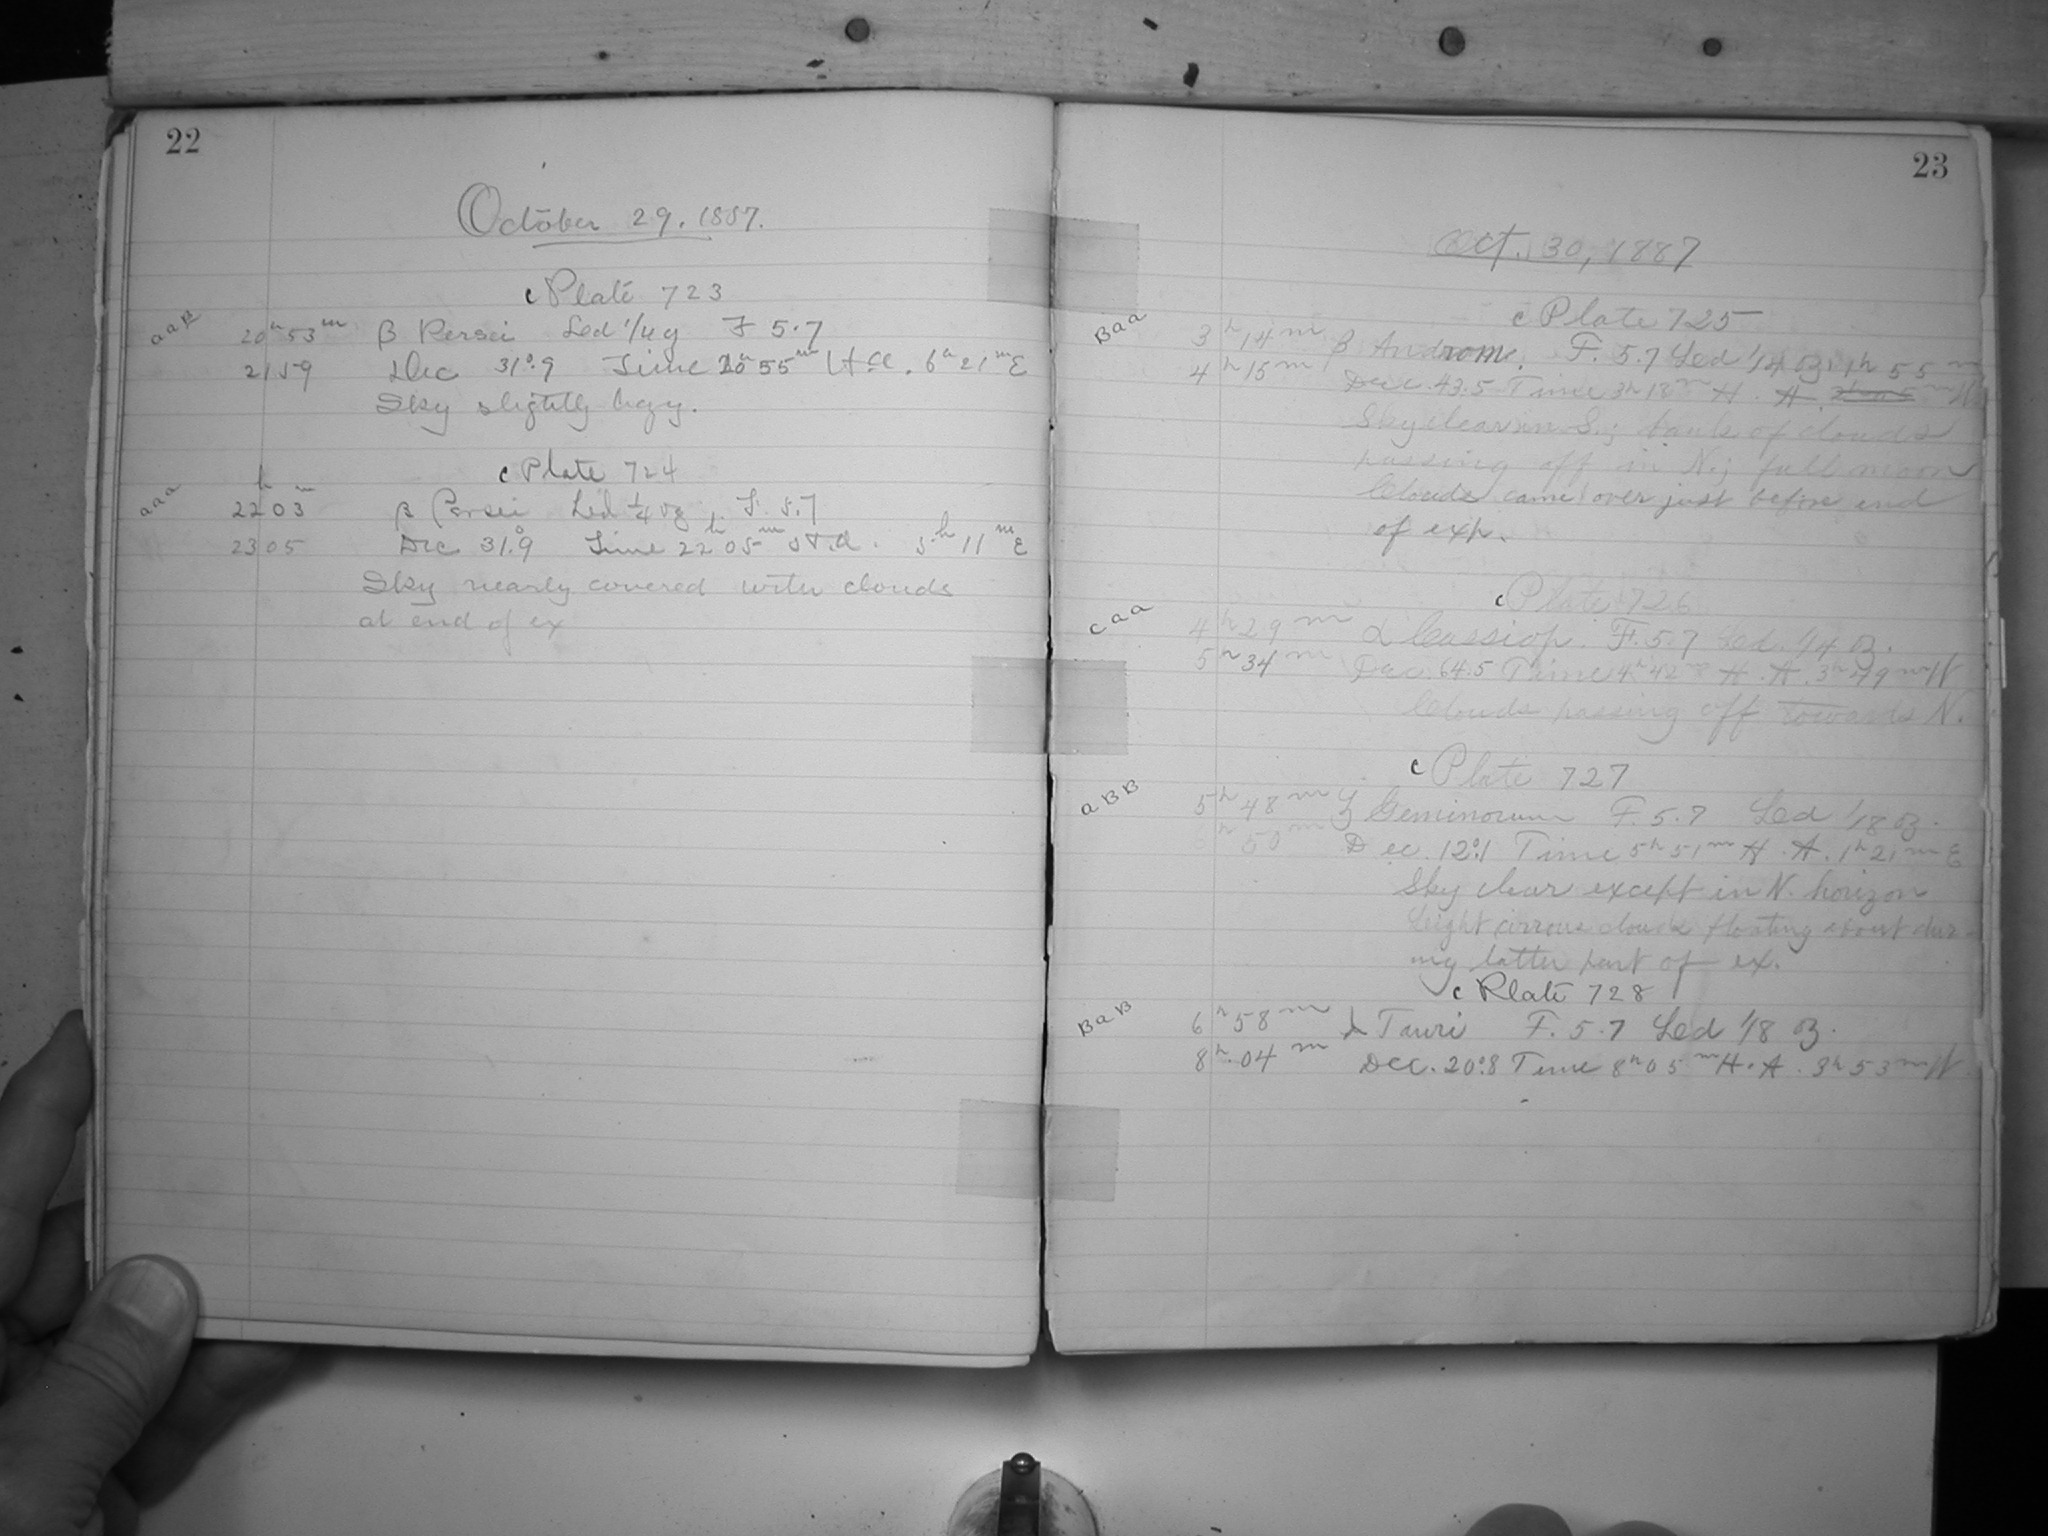 22
October 29. 1887.
c Plate 723
aaB 20h 53m β Persei Led 1/4 F 5.7
21 59 Dec 31°.9 Time 20h 55m 6h 21m E
Sky slightly hazy.
c Plate 724
aaa h m
22 03 β Persei Led 1/4 F. 5.7
23 05 Dec 31°.9 Time 22h 05m 5h 11m E
Sky nearly covered with clouds
at end of ex
23
Oct. 30, 1887
c Plate 725
Baa 3h 14m β Androm. F. 5.7 Led 1/4 1h 55m
4h 15m Dec. 43.5 Time 3h 18m H. A.
Sky clear in S.; bank of clouds
passing off in N.; full moon
Clouds came over just before end
of exp.
c Plate 726
caa 4h 29m α Cassiop. F. 5.7 Led. 1/4
5h 34m Dec. 64.5 Time 4h 42m H. A. 3h 49m W
Clouds passing off towards N.
c Plate 727
aBB 5h 48m ζ Geminorum F. 5.7 Led 1/8
6h 50m Dec. 12°.1 Time 5h 51m H. A. 1h 21m E
Sky clear except in N. horizon
Light cirrous clouds floating about dur-
ing latter part of ex.
c Plate 728
BaB 6h 58m λ Tauri F. 5.7 Led 1/8
8h 04m Dec. 20°.8 Time 8h 05m H. A. 3h 53m W